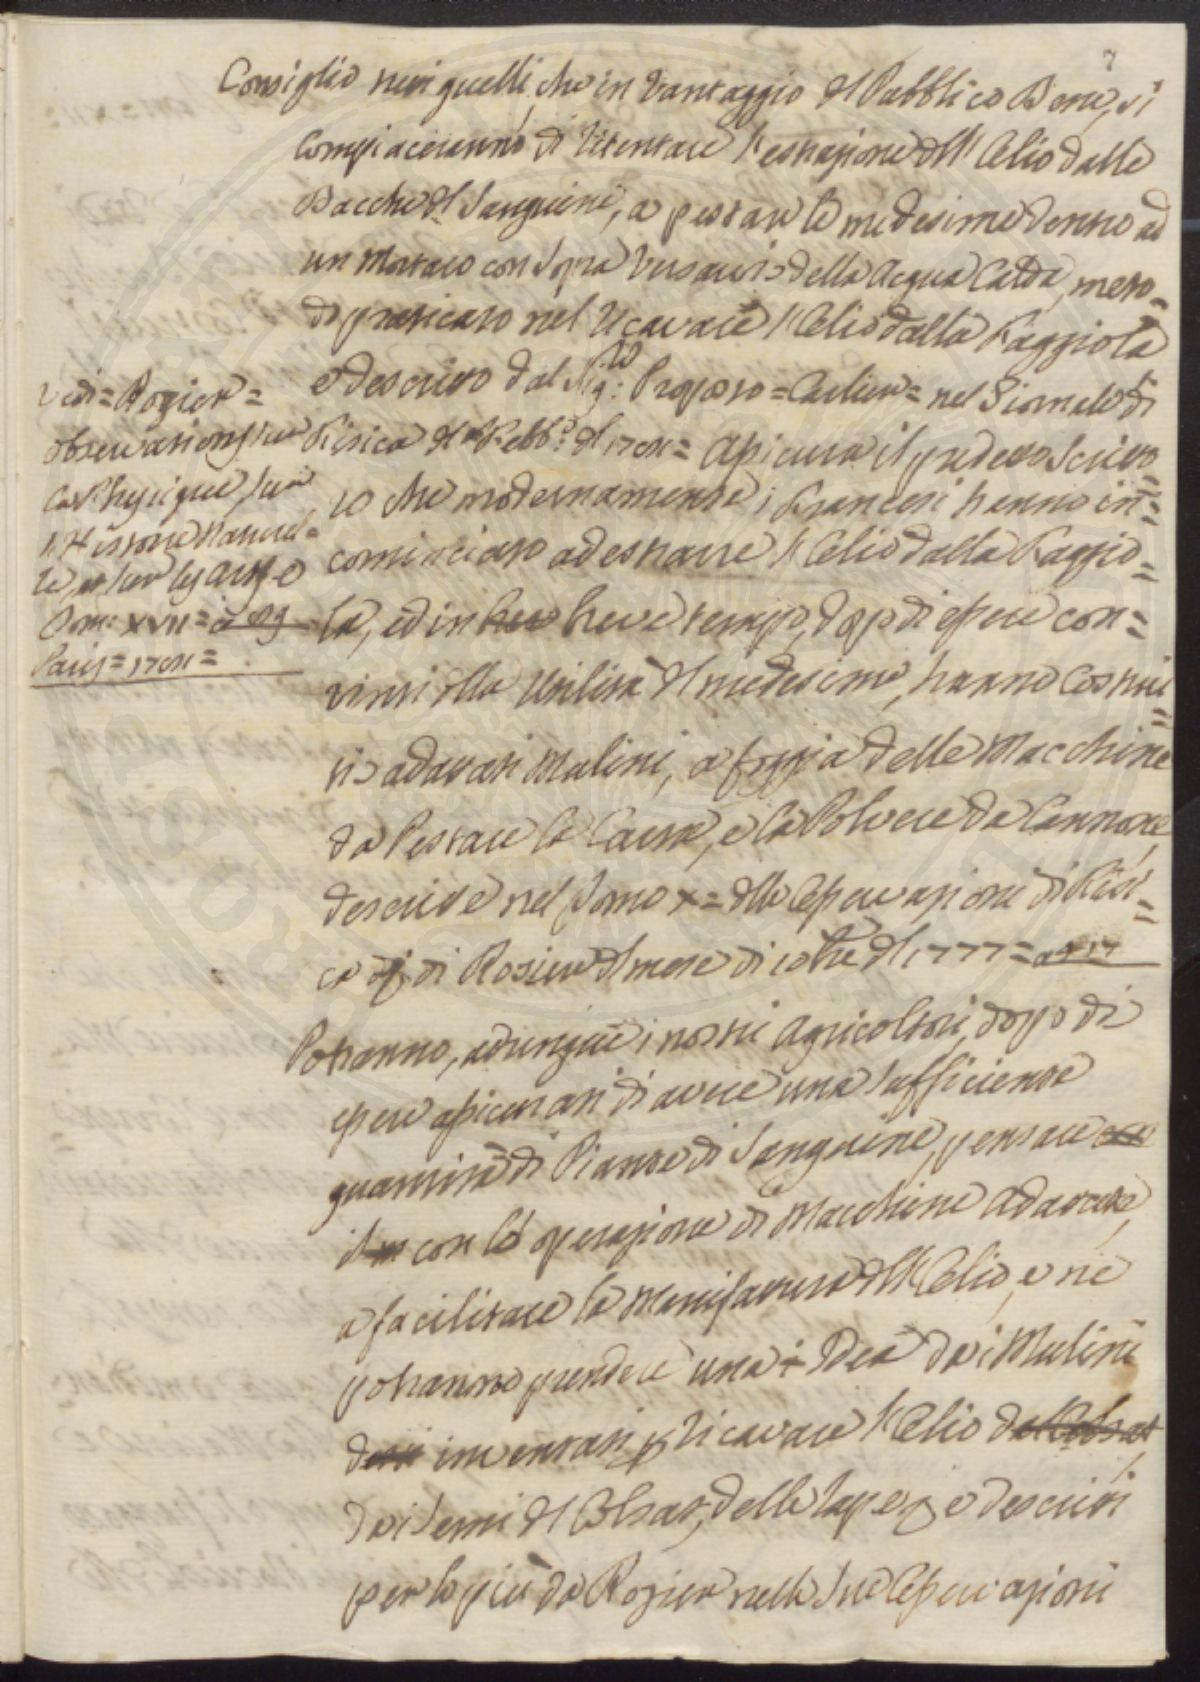 7
Consiglio tutti quelli, che in Vantaggio del Pubblico Bene, si
Compiaceranno di ritentare l'estrazione dell'Olio dalle
Bacche del Sanguine, a pestare le medesime dentro ad
un Mortaio con sopra Versarvi della Acqua Calda, meto=
do praticato nel ricavare l'Olio dalla Faggiola
e descritto dal Sig.re Proposto = Carlier = nel Giornale di
Fisica del Febb.o del 1781 = Assicura il predetto Scritto=
re che modernamente i Francesi hanno in=
cominciato ad estrarre l'Olio dalla Faggio=
la, ed in breve tempo, dopo di essere con=
vinti della Utilità del medesimo, hanno Costrui=
ti adattati Mulini, a foggia delle Macchine
da Pestare la Carta, e la Polvere da Cannone,
descritte nel Tomo X = delle Osservazioni di Fisi=
ca di Rozier del mese di 8bre del 1777 = a 417
Potranno, adunque i nostri Agricoltori, dopo di
essere assicurati di avere una sufficiente
quantità di Piante di Sanguine, pensare
con la operazione di Macchine Adattate,
a facilitare la Manifattura dell'Olio, e ne
potranno prendere una Idea dai Mulini
inventati per ricavare l'Olio
dai Semi del Colsat, delle Rape e descritti
per lo più da Rozier nelle Sue Osservazioni
Vedi = Rozier =
Observations sur
La Physique, sur
l'Histoire Naturel=
le, et sur les Arts =
Tom: XVII = a
Paris = 1781 =